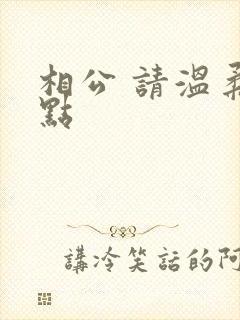 相公 請溫柔
點
講冷笑話的阿